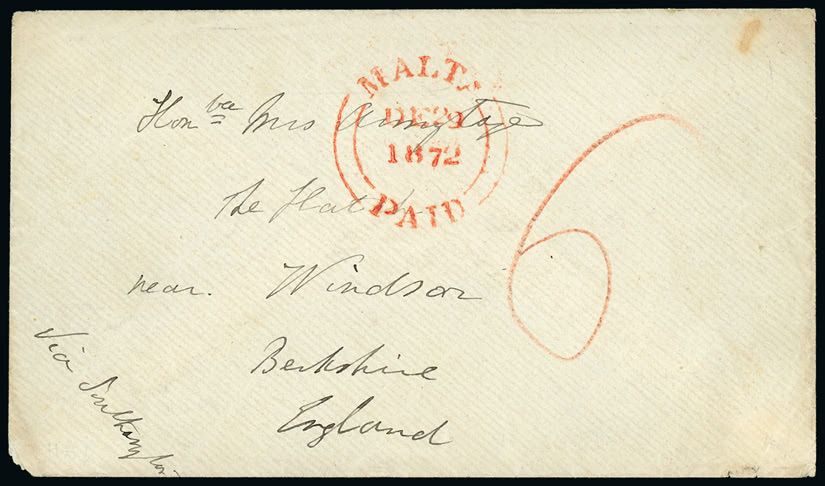 MALTA
DE 29
1872
PAID
Honble Mrs Armytage
The Hatch
near. Windsor
Berkshire
England
Via Southampton
6